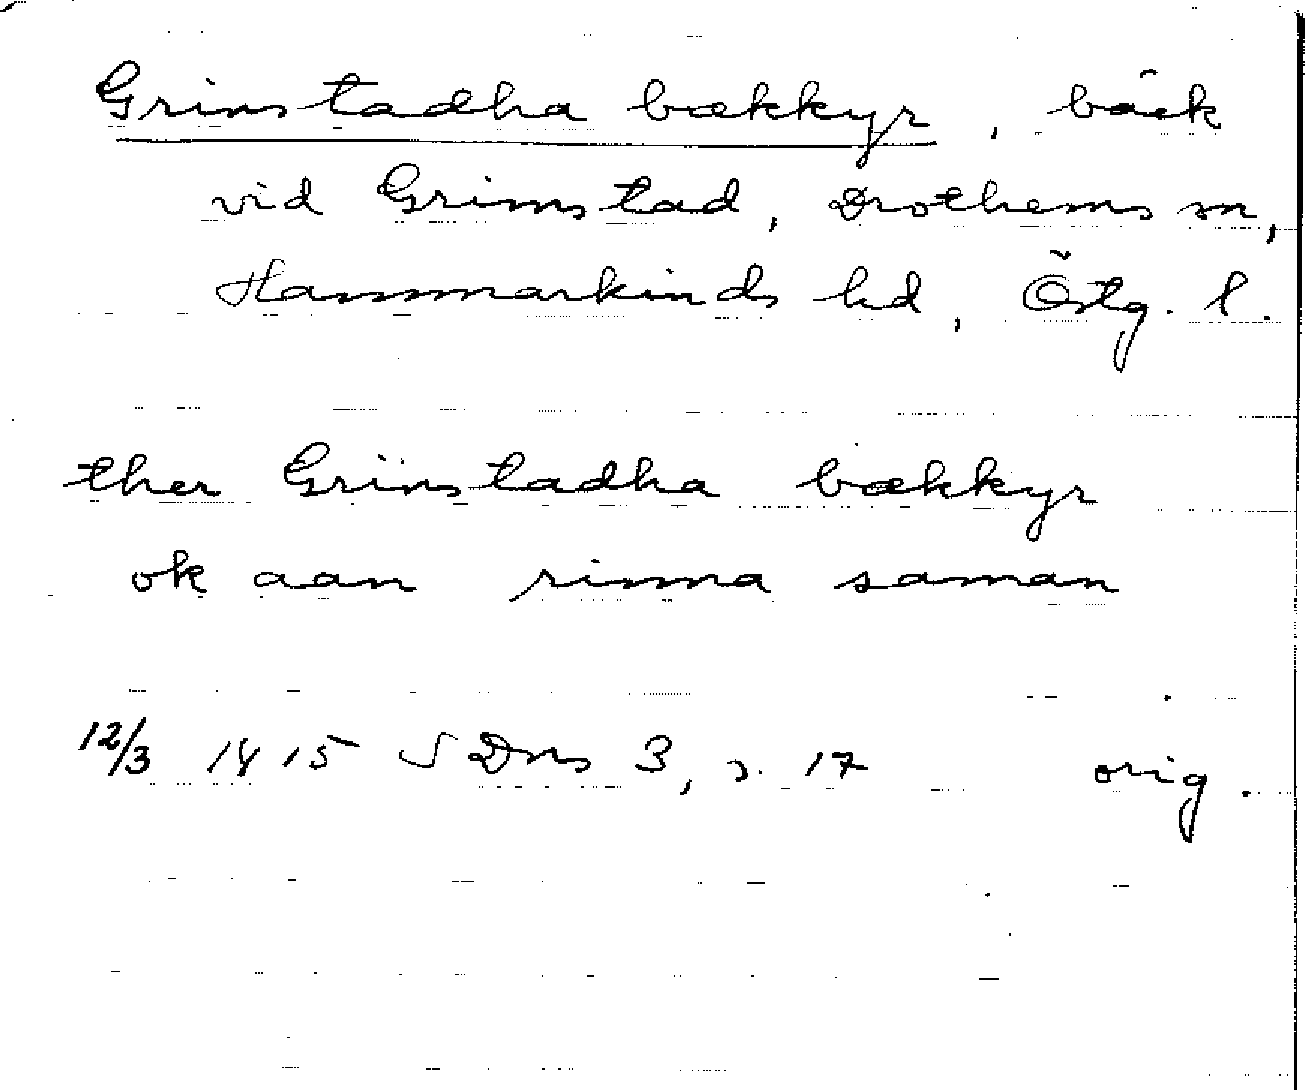 Grimstadha bækkyr, bäck
vid Grimstad, Drothems sn,
Hammarkinds hd, Östg. l.
ther Grimstadha bækkyr
ok aan rinna saman
12/3 1415 SDns 3, s. 17 orig.